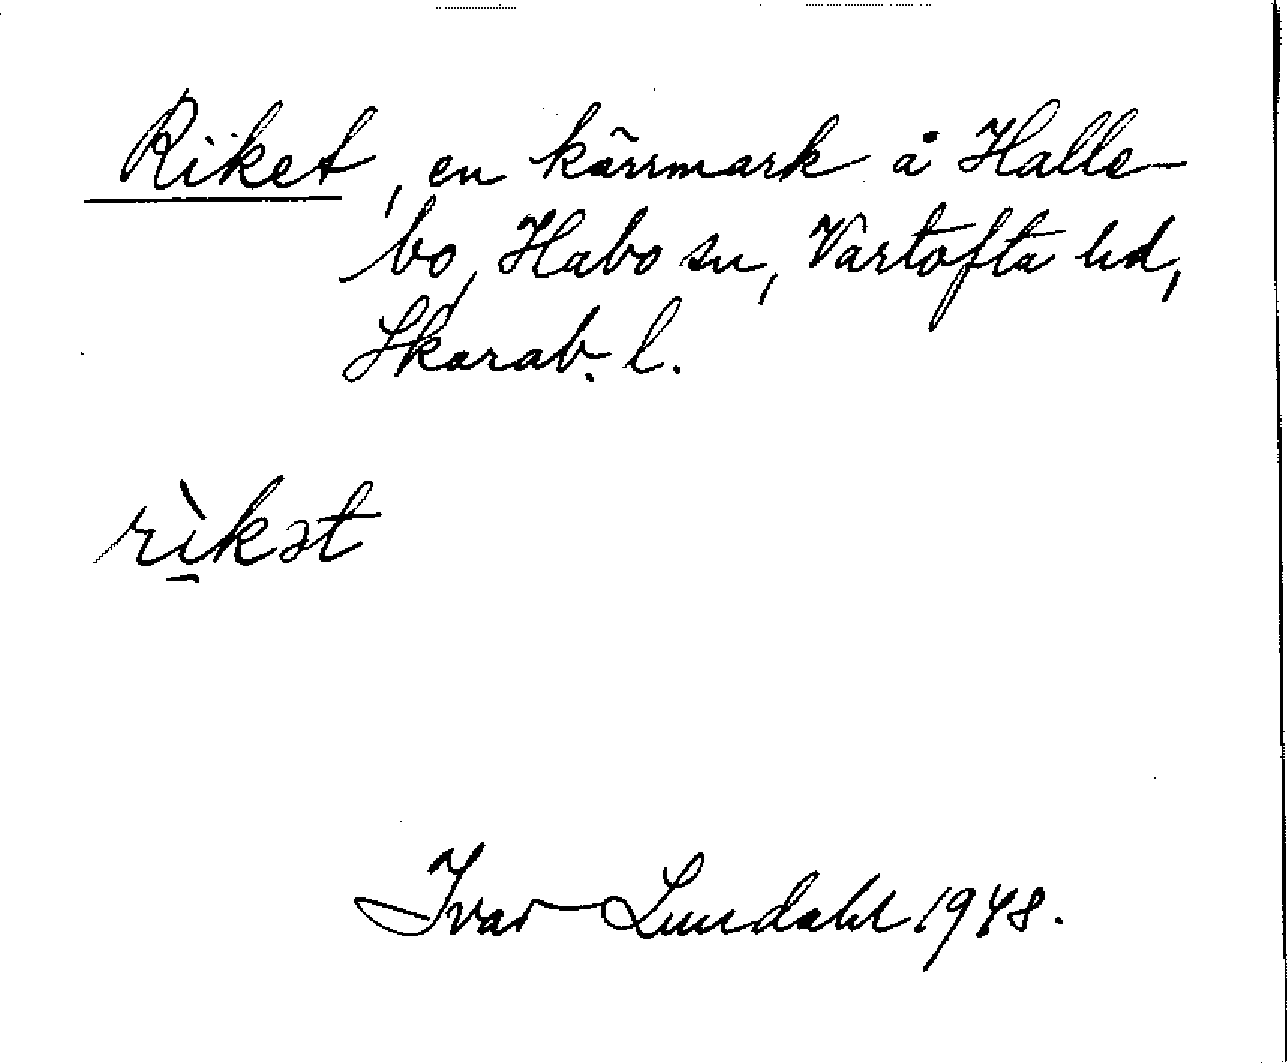 Riket, en kärrmark å Halle-
bo, Habo sn, Vartofta hd,
Skarab. l.
rì̱kət
Ivar Lundahl 1948.